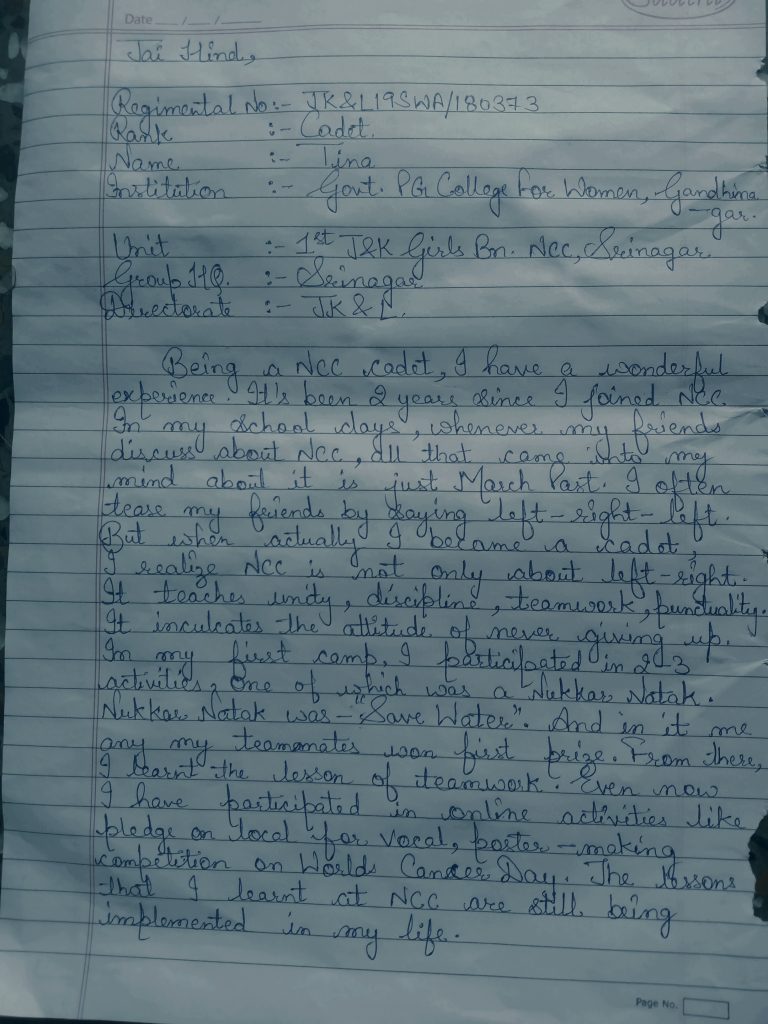 Date __/__/____
Jai Hind,
Regimental No:- JK&L19SWA/180373
Rank :- Cadet.
Name :- Tina
Institution :- Govt. PG College For Women, Gandhina
-gar.
Unit :- 1st J&K Girls Bn. NCC, Srinagar.
Group HQ. :- Srinagar
Directorate :- JK & L.
Being a NCC cadet, I have a wonderful
experience. It's been 2 years since I joined NCC.
In my school days, whenever my friends
discuss about NCC, all that came into my
mind about it is just March Past. I often
tease my friends by saying left-right-left.
But when actually I became a cadet,
I realize NCC is not only about left-right.
It teaches unity, discipline, teamwork, punctuality.
It inculcates the attitude of never giving up.
In my first camp, I participated in 2-3
activities, One of which was a Nukkar Natak.
Nukkar Natak was - "Save Water". And in it me
any my teammates won first prize. From there,
I learnt the lesson of teamwork. Even now
I have participated in online activities like
pledge on local for vocal, poster-making
competition on Worlds Cancer Day. The lessons
that I learnt at NCC are still being
implemented in my life.
Page No.